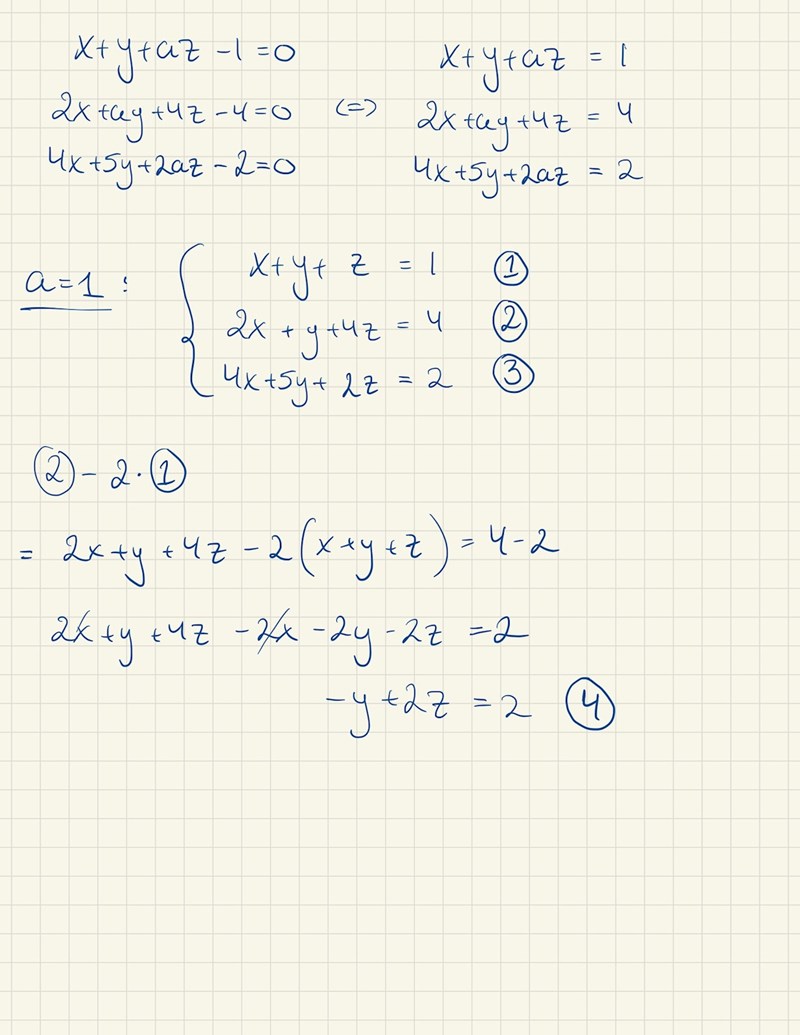 x+y+az-1=0 x+y+az = 1
2x+ay+4z-4=0 <=> 2x+ay+4z = 4
4x+5y+2az-2=0 4x+5y+2az = 2
a=1: { x+y+ z = 1 ①
2x + y+4z = 4 ②
4x+5y+ 2z = 2 ③
② - 2·①
= 2x+y+4z-2(x+y+z) = 4-2
2x+y+4z -2x -2y-2z =2
-y+2z = 2 ④